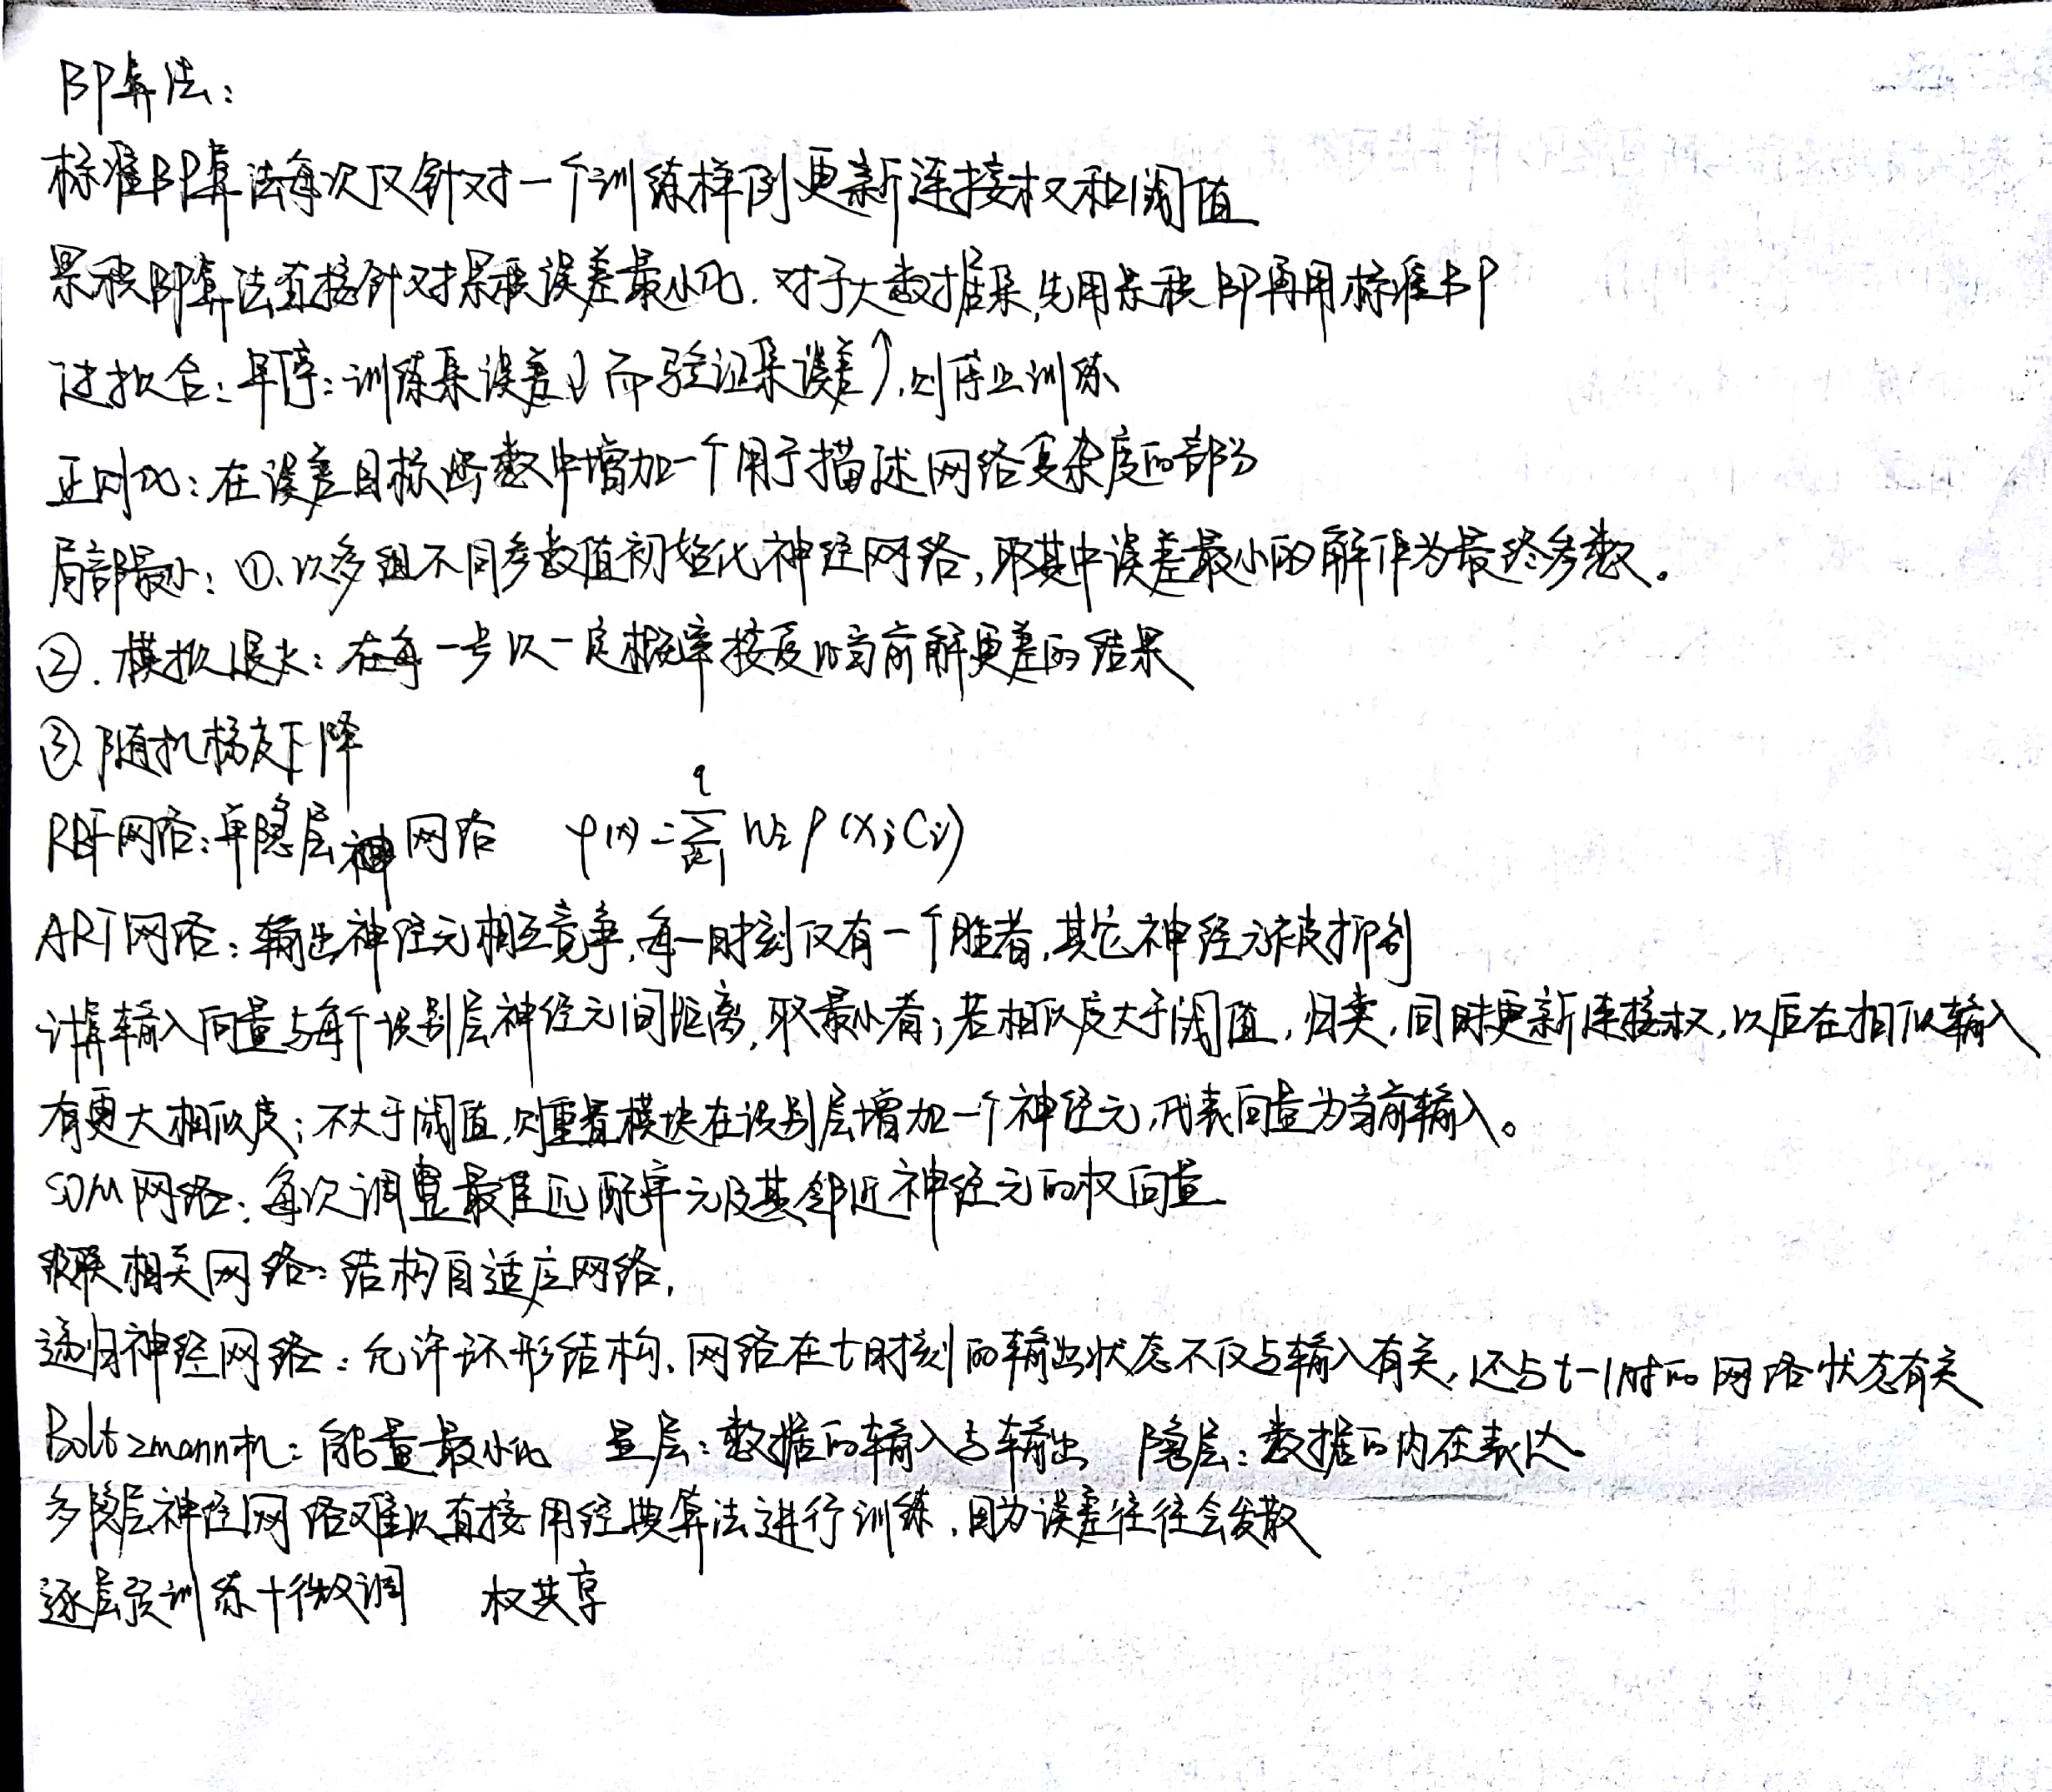 BP算法：
标准BP算法每次仅针对一个训练样例更新连接权和阈值
累积BP算法直接针对累积误差最小化. 对于大数据集,先用累积BP再用标准BP
过拟合：早停：训练集误差↓而验证集误差↑,则停止训练
正则化：在误差目标函数中增加一个用于描述网络复杂度的部分
局部最小：①、以多组不同参数值初始化神经网络，取其中误差最小的解作为最终参数。
②. 模拟退火：在每一步以一定概率接受比当前解更差的结果
③随机梯度下降
RBF网络：单隐层神网络 φ(x)=∑_{i=1}^{q} wᵢρ(x,cᵢ)
ART网络：输出神经元相互竞争,每一时刻仅有一个胜者,其它神经元被抑制
计算输入向量与每个识别层神经元间距离,取最小者；若相似度大于阈值，归类，同时更新连接权,以后在相似输入
有更大相似度；不大于阈值,则重置模块在识别层增加一个神经元,代表向量为当前输入。
SOM网络：每次调整最佳匹配单元及其邻近神经元的权向量
级联相关网络：结构自适应网络,
递归神经网络：允许环形结构, 网络在t时刻的输出状态不仅与输入有关，还与t-1时的网络状态有关
Boltzmann机：能量最小化 显层：数据的输入与输出 隐层：数据的内在表达
多隐层神经网络难以直接用经典算法进行训练,因为误差往往会发散
逐层预训练+微调 权共享